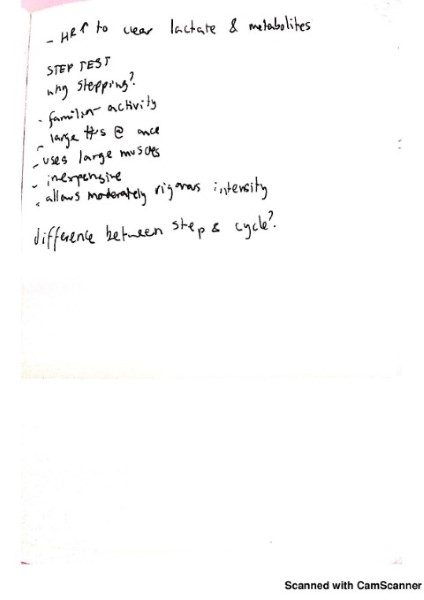 - HR ↑ to clear lactate & metabolites
STEP TEST
why stepping?
- familiar activity
- large #s @ once
- uses large muscles
- inexpensive
- allows moderately rigorous intensity
difference between step & cycle?
Scanned with CamScanner